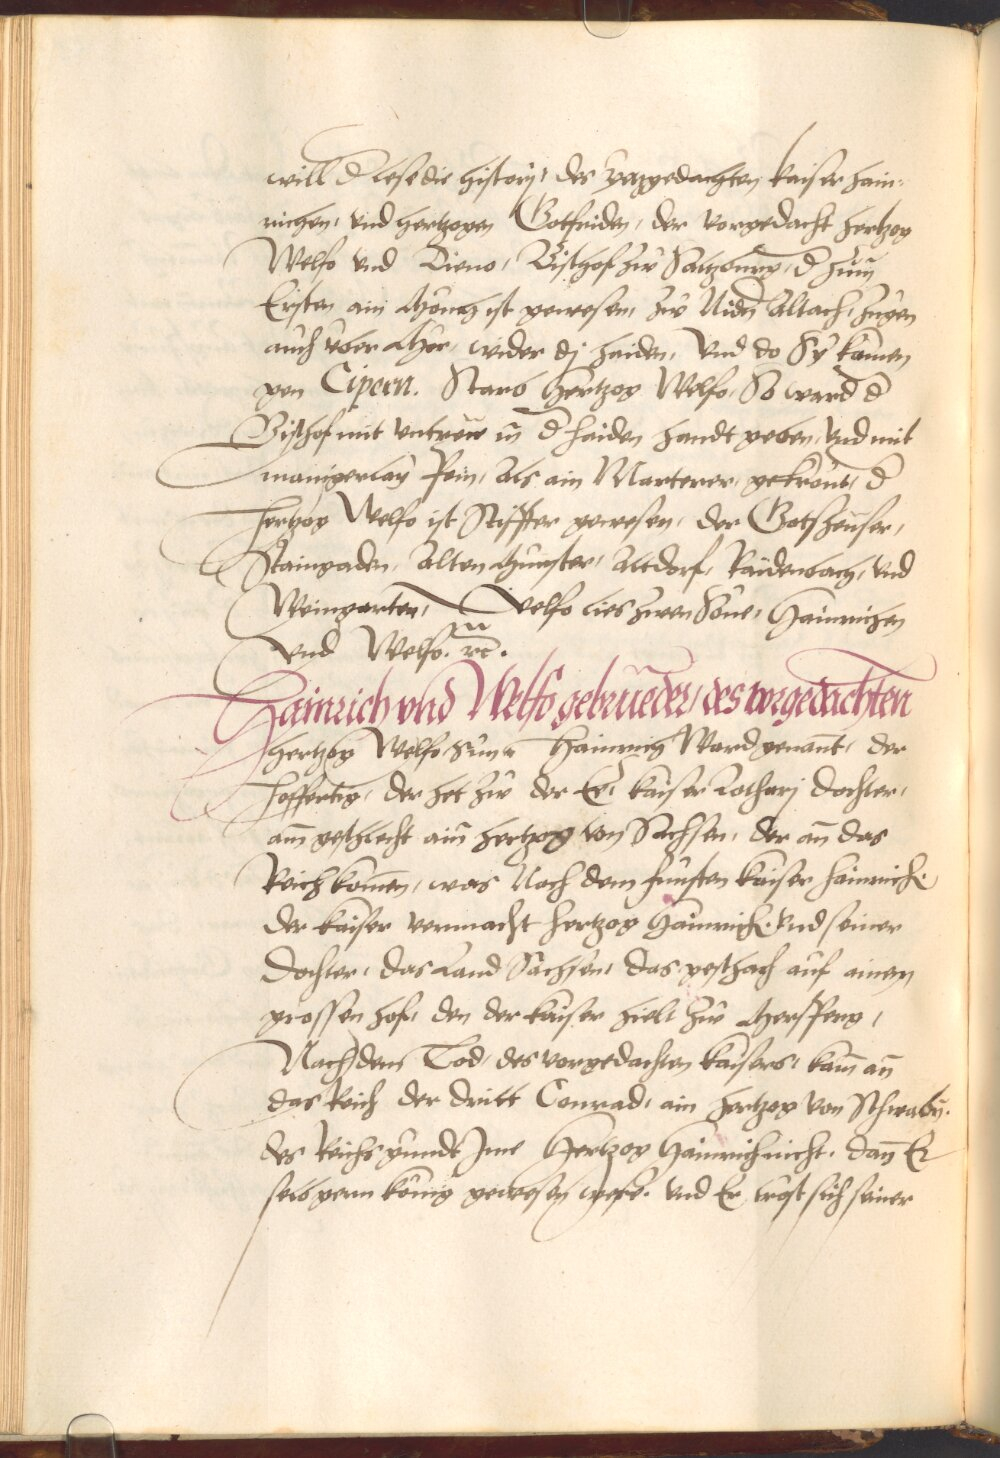 will d lese die histori, des vorgedachten kaiser Hain-
richen, und hertzogen Gotfriden, der vorgedacht hertzog
Welfo und Tieno, Bischof zw Saltzburg, d zum
Ersten ain Münch ist gewesen, zw Nidn Altach, zugen
auch uber Mör, wider dj haiden, Und do Sy kamen
gen Cipern. Starb Hertzog Welfo, So ward d
Bischof mit untrew in d haiden handt geben, und mit
manigerlay Pein, Als ain Marterer, gekrönt, d
hertzog Welfo ist Stiffter gewesen, der Gotsheuser,
Staingaden, Alten Münster, Altdorf, Raidenbach, und
Weingarten, Welfo lies zwen Söne, Hainrichen
und Welfo. rc.
Hainrich und Welfo gebrueder, des vorgedachten
hertzog Welfo Sün, Hainrich Ward genant, der
hoffertig, der het zw der Ee, kaiser Lotharj dochter,
am geschlecht ain hertzog von Sachsen, der an das
Reich komen, was Nach dem funften kaiser Hainrich.
der kaiser vermacht hertzog Hainrich. und seiner
dochter, das Land Sachsen, das geschach auf ainem
grossen hof, den der kaiser hielt zw Mersperg,
Nach dem Tod, des vorgedachten kaisers, kam an
das Reich der dritt Conrad, ain hertzog von Schwabn.
des Reichs gundt Jme Hertzog Hainrich nicht. dan Er
selbs gern könig gewesen were. und Er tröst sich seiner